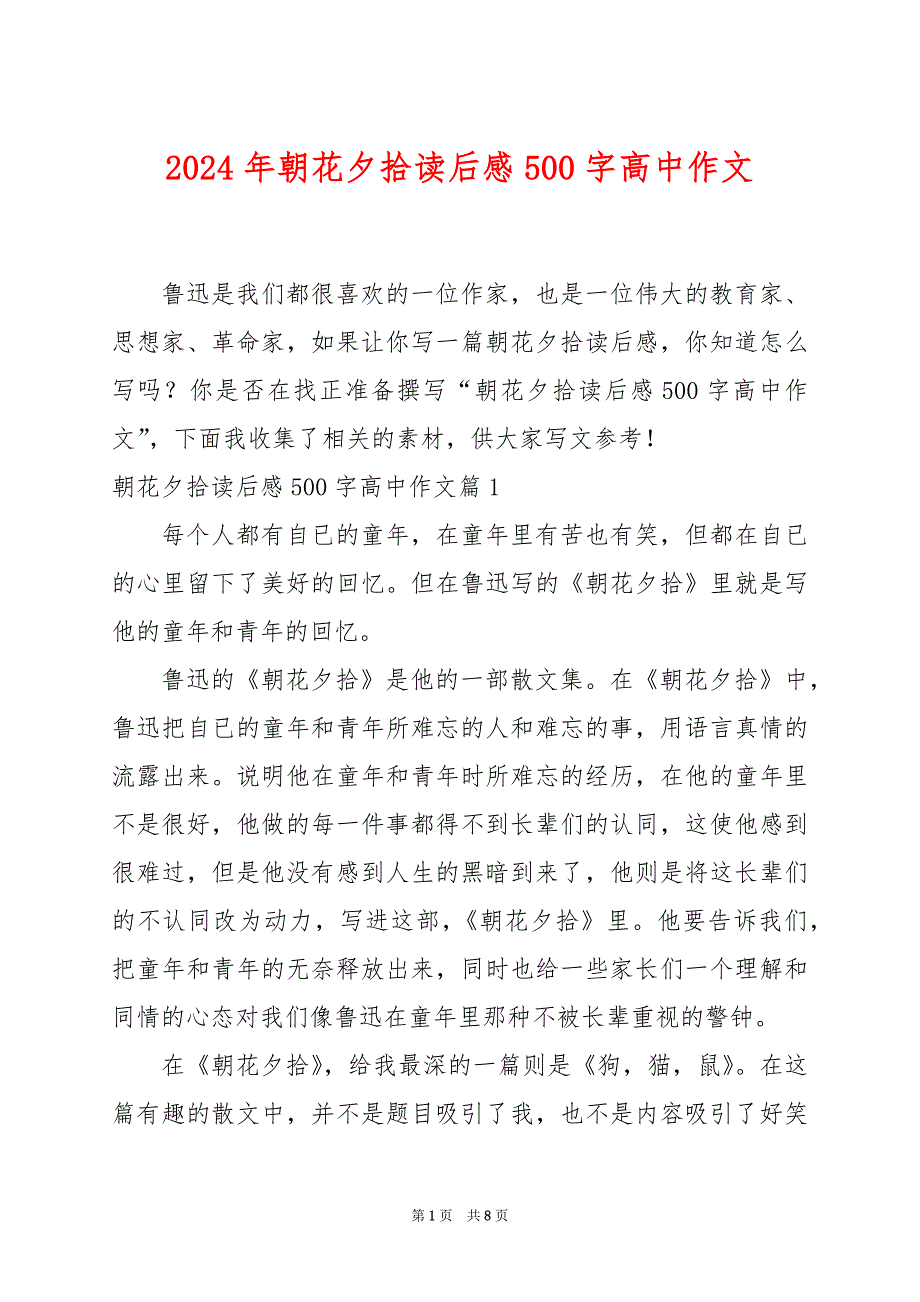 2024年朝花夕拾读后感500字高中作文
鲁迅是我们都很喜欢的一位作家，也是一位伟大的教育家、
思想家、革命家，如果让你写一篇朝花夕拾读后感，你知道怎么
写吗？你是否在找正准备撰写“朝花夕拾读后感500字高中作
文”，下面我收集了相关的素材，供大家写文参考！
朝花夕拾读后感500字高中作文篇1
每个人都有自已的童年，在童年里有苦也有笑，但都在自已
的心里留下了美好的回忆。但在鲁迅写的《朝花夕拾》里就是写
他的童年和青年的回忆。
鲁迅的《朝花夕拾》是他的一部散文集。在《朝花夕拾》中，
鲁迅把自已的童年和青年所难忘的人和难忘的事，用语言真情的
流露出来。说明他在童年和青年时所难忘的经历，在他的童年里
不是很好，他做的每一件事都得不到长辈们的认同，这使他感到
很难过，但是他没有感到人生的黑暗到来了，他则是将这长辈们
的不认同改为动力，写进这部，《朝花夕拾》里。他要告诉我们，
把童年和青年的无奈释放出来，同时也给一些家长们一个理解和
同情的心态对我们像鲁迅在童年里那种不被长辈重视的警钟。
在《朝花夕拾》，给我最深的一篇则是《狗，猫，鼠》。在这
篇有趣的散文中，并不是题目吸引了我，也不是内容吸引了好笑
第1页 共8页